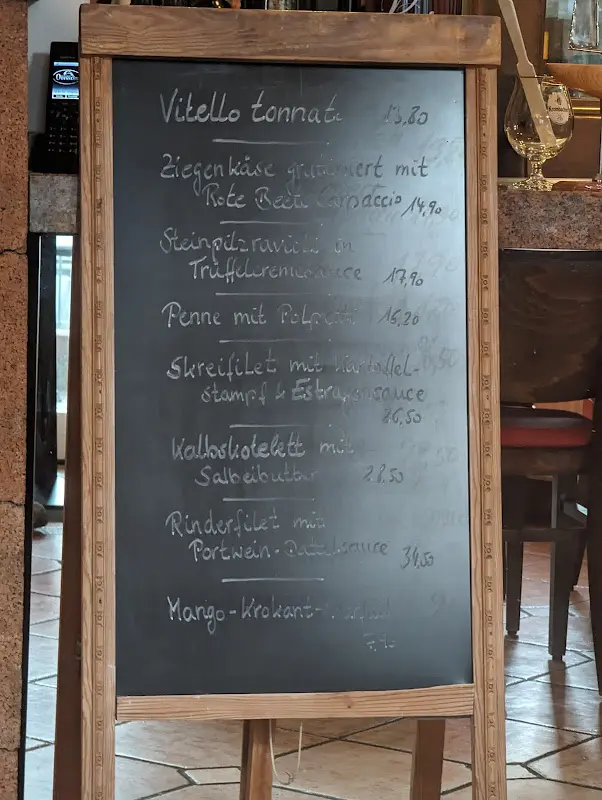 Vitello tonnato 13,80
Ziegenkäse gratiniert mit
Rote Beete Carpaccio 14,90
Steinpilzravioli in
Trüffelcremesauce 17,90
Penne mit
Skreifilet mit Kartoffel-
stampf & Estragonsauce
26,50
Kalbskotelett mit
Salbeibutter 28,50
Rinderfilet mit
Portwein-Dattelsauce 34,50
Mango-Krokant-
7,90